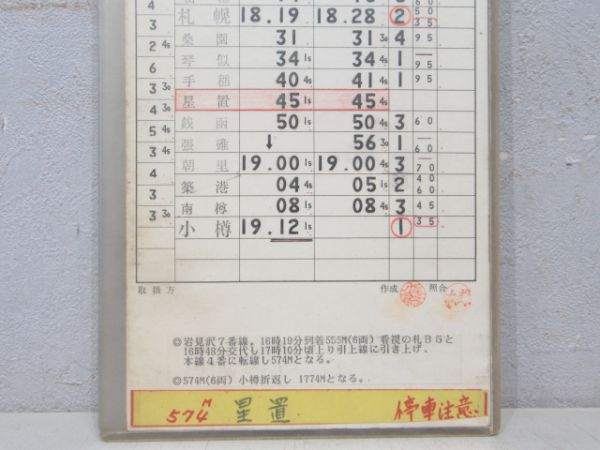 4 60
札幌 18.19 18.28 ② 50 35
3 桑園 31 31 30 4 95
2 45 琴似 34 15 34 45 1 95
6 手稲 40 45 41 45 1 95
3 30 星置 45 15 45 45
4 30 銭函 50 15 50 45 3 60
5 45 張碓 ↓ 56 30 1
3 45 朝里 19.00 15 19.00 45 3 70
3 築港 04 45 05 15 2 40 60
3 南樽 08 15 08 45 3 45
3 30 小樽 19.12 15 ① 35
取扱方 作成 照合
◎岩見沢7番線。16時19分到着555M(6両)看視の札B5と
16時48分交代し17時10分頃上り引上線に引き上げ、
本線4番に転線し574Mとなる。
◎574M(6両)小樽折返し 1774Mとなる。
574M 星置 停車注意